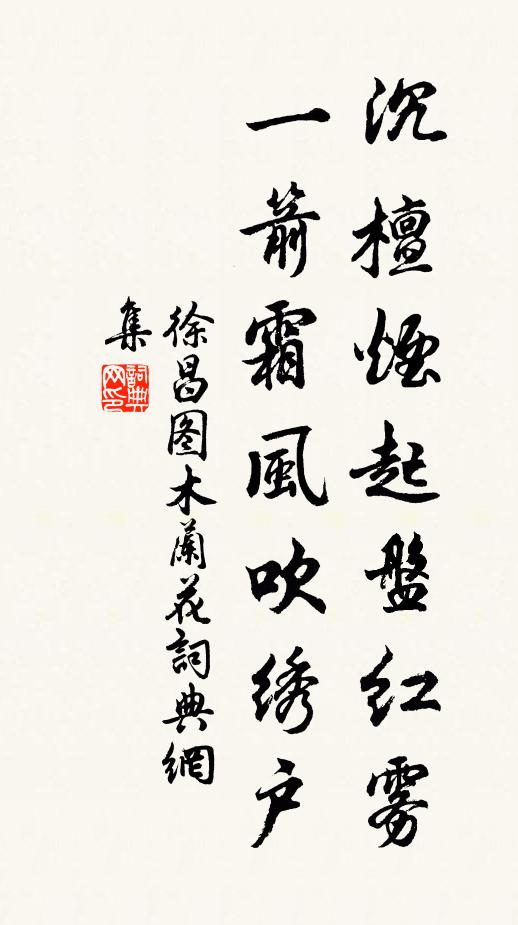 沉檀煙起盤红雾
一箭霜風吹绣户
徐昌图木蘭花詞典網
集
詞典
网印